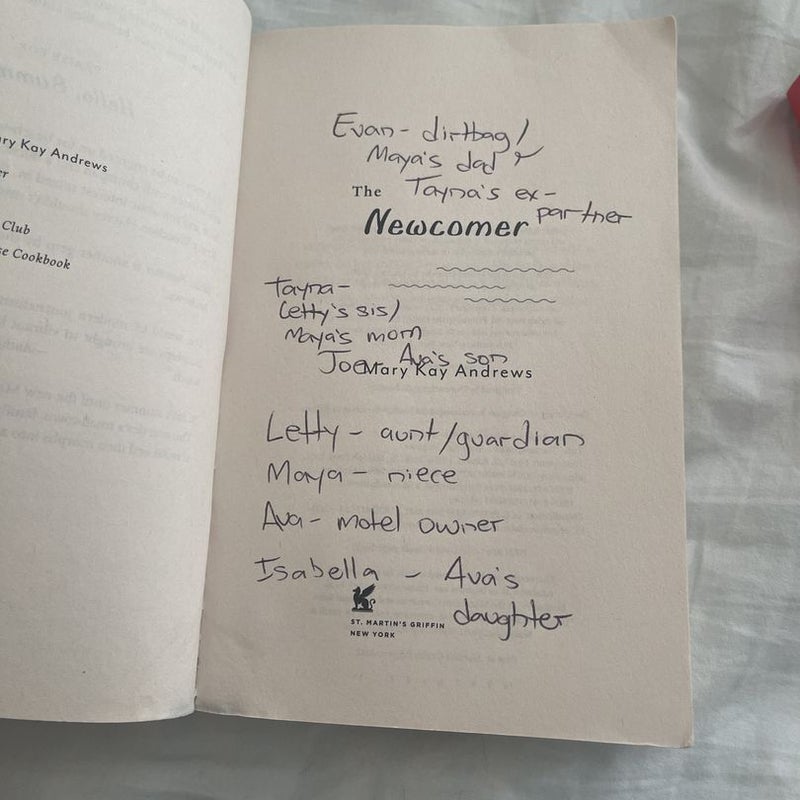 ry Kay Andrews
er
Club
se Cookbook
Evan- dirtbag/
Maya's dad &
The Tayna's ex-
Newcomer partner
Tayna-
Letty's sis/
Maya's mom
Joe- Ava's son
Mary Kay Andrews
Letty - aunt/guardian
Maya - niece
Ava- motel owner
Isabella - Ava's
daughter
ST. MARTIN'S GRIFFIN
NEW YORK